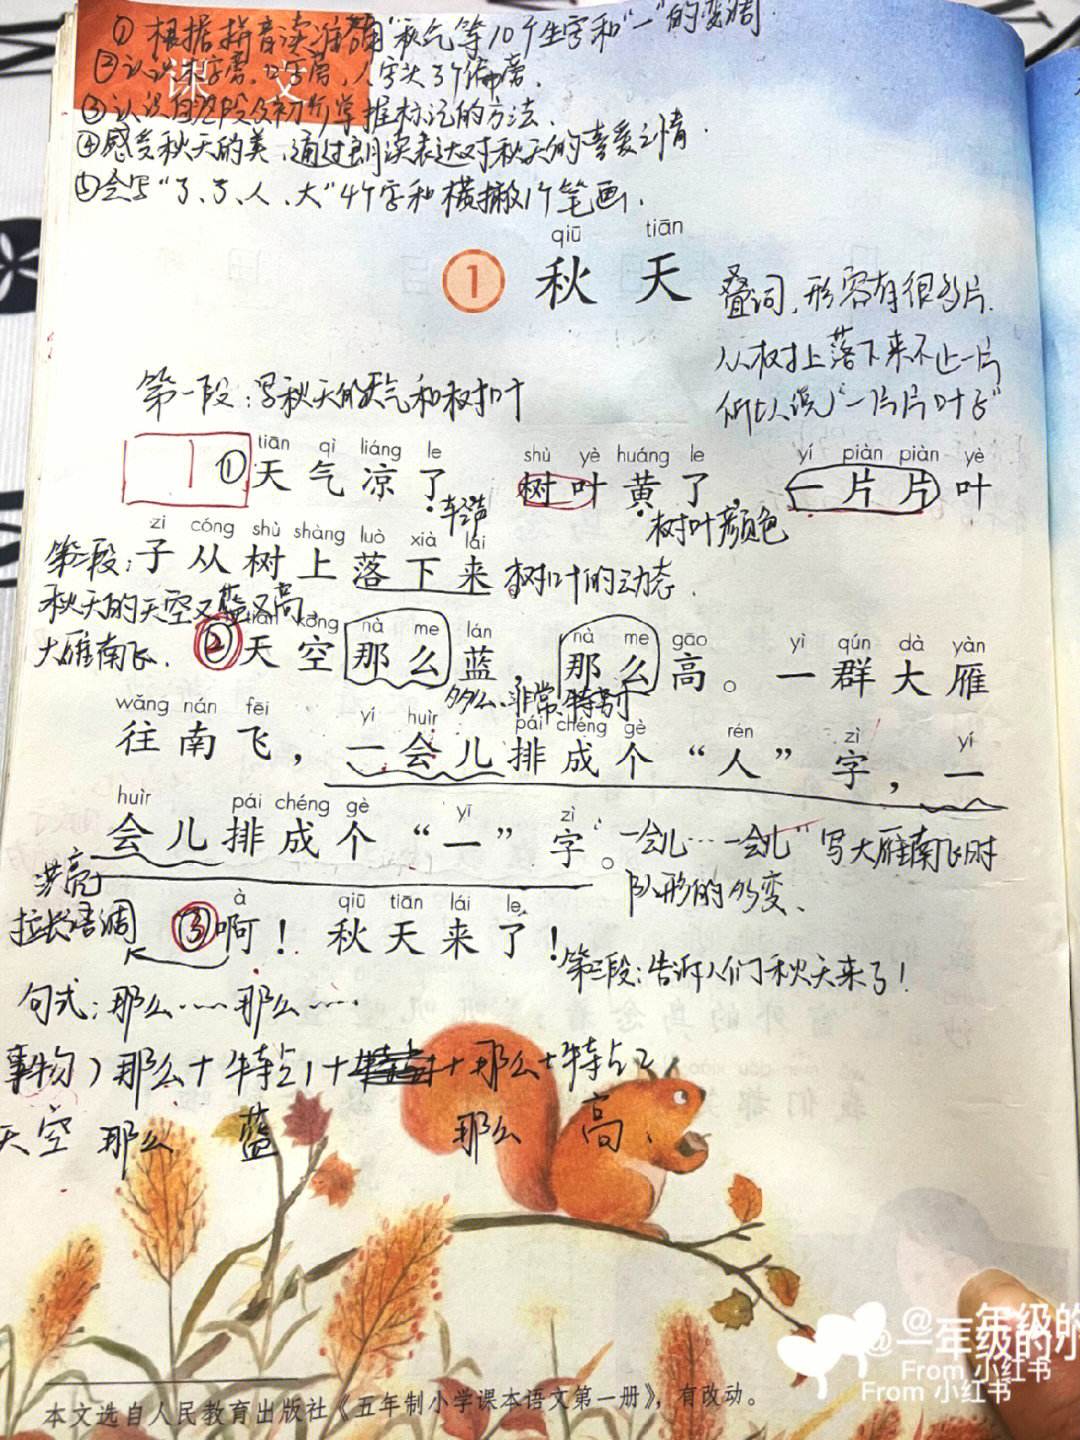 ①根据拼音读准确"秋气等10个生字和"一"的变调.
②认识木字旁、口字旁、人字头3个偏旁.
课文
③认识自然段及初步掌握标记的方法.
④感受秋天的美,通过朗读表达对秋天的喜爱之情.
⑤会写"了、子、人、大"4个字和横撇1个笔画.
qiū tiān
1 秋天
叠词,形容有很多片.
从树上落下来不止一片
所以说"一片片叶子"
第一段:写秋天的天气和树叶
tiān qì liáng le shù yè huáng le yí piàn piàn yè
①天气凉了,树叶黄了,一片片叶
轻声
树叶颜色
zi cóng shù shàng luò xià lái
子从树上落下来
树叶的动态.
第二段:
秋天的天空又蓝又高,
大雁南飞.
tiān kōng nà me lán nà me gāo yì qún dà yàn
②天空那么蓝,那么高。一群大雁
多么、非常、特别
wǎng nán fēi yí huìr pái chéng gè rén zì yí
往南飞,一会儿排成个"人"字,一
huìr pái chéng gè yī zì
会儿排成个"一"字。
"一会儿……一会儿"写大雁南飞时
队形的多变.
洪亮
拉长语调
à qiū tiān lái le
③啊!秋天来了!
第三段:告诉人们秋天来了!
句式:那么……那么…….
事物)那么+特点1++那么+特点2
天空 那么 蓝 那么 高.
本文选自人民教育出版社《五年制小学课本语文第一册》,有改动。
@一年级的
@一年级的小
From 小红书
From 小红书